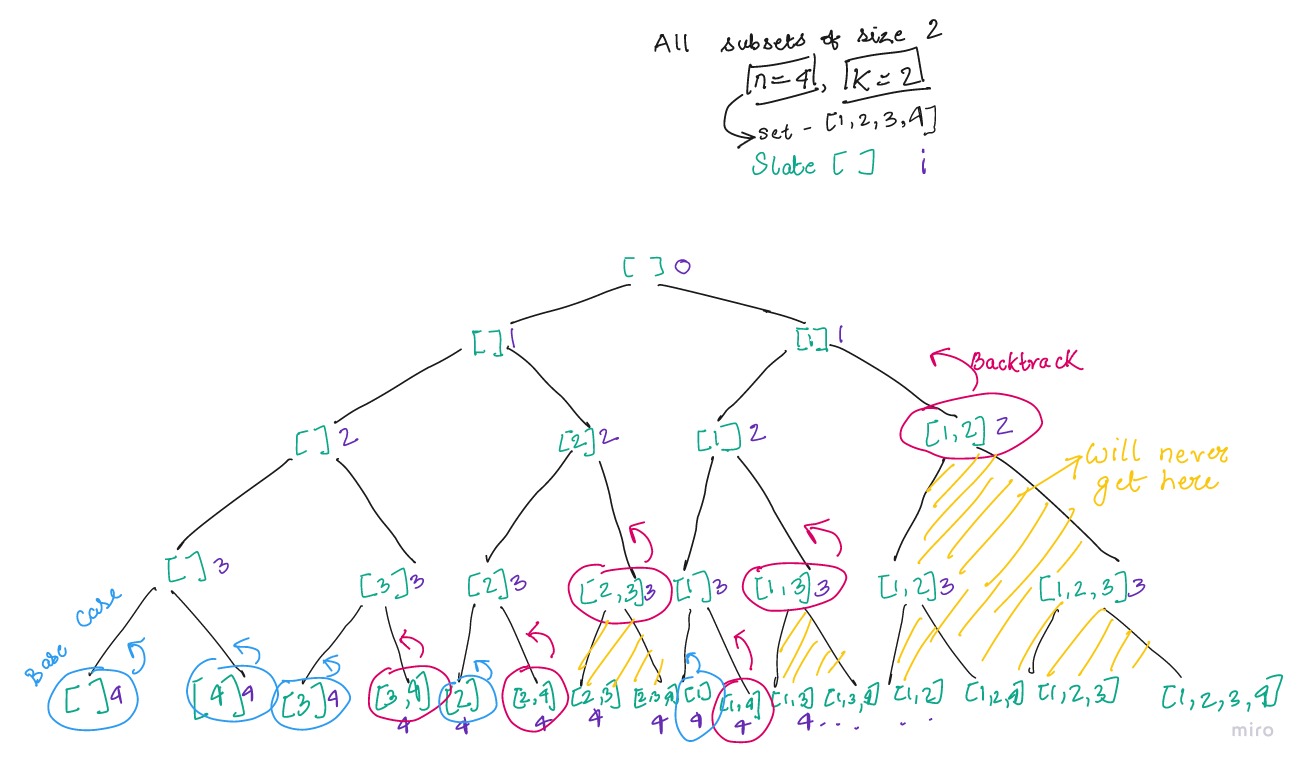 All subsets of size 2
n=4, K=2
set - [1,2,3,4]
Slate [ ] i
[ ] 0
[ ] 1 [1] 1
Backtrack
[ ] 2 [2] 2 [1] 2 [1,2] 2
Will never
get here
[ ] 3 [3] 3 [2] 3 [2,3] 3 [1] 3 [1,3] 3 [1,2] 3 [1,2,3] 3
Base case
[ ] 4 [4] 4 [3] 4 [3,4] [2] [2,4] [2,3] [2,3,4] [1] [1,4] [1,3] [1,3,4] [1,2] [1,2,4] [1,2,3] [1,2,3,4]
4 4 4 4 4 4 4 4 . . . . .
miro